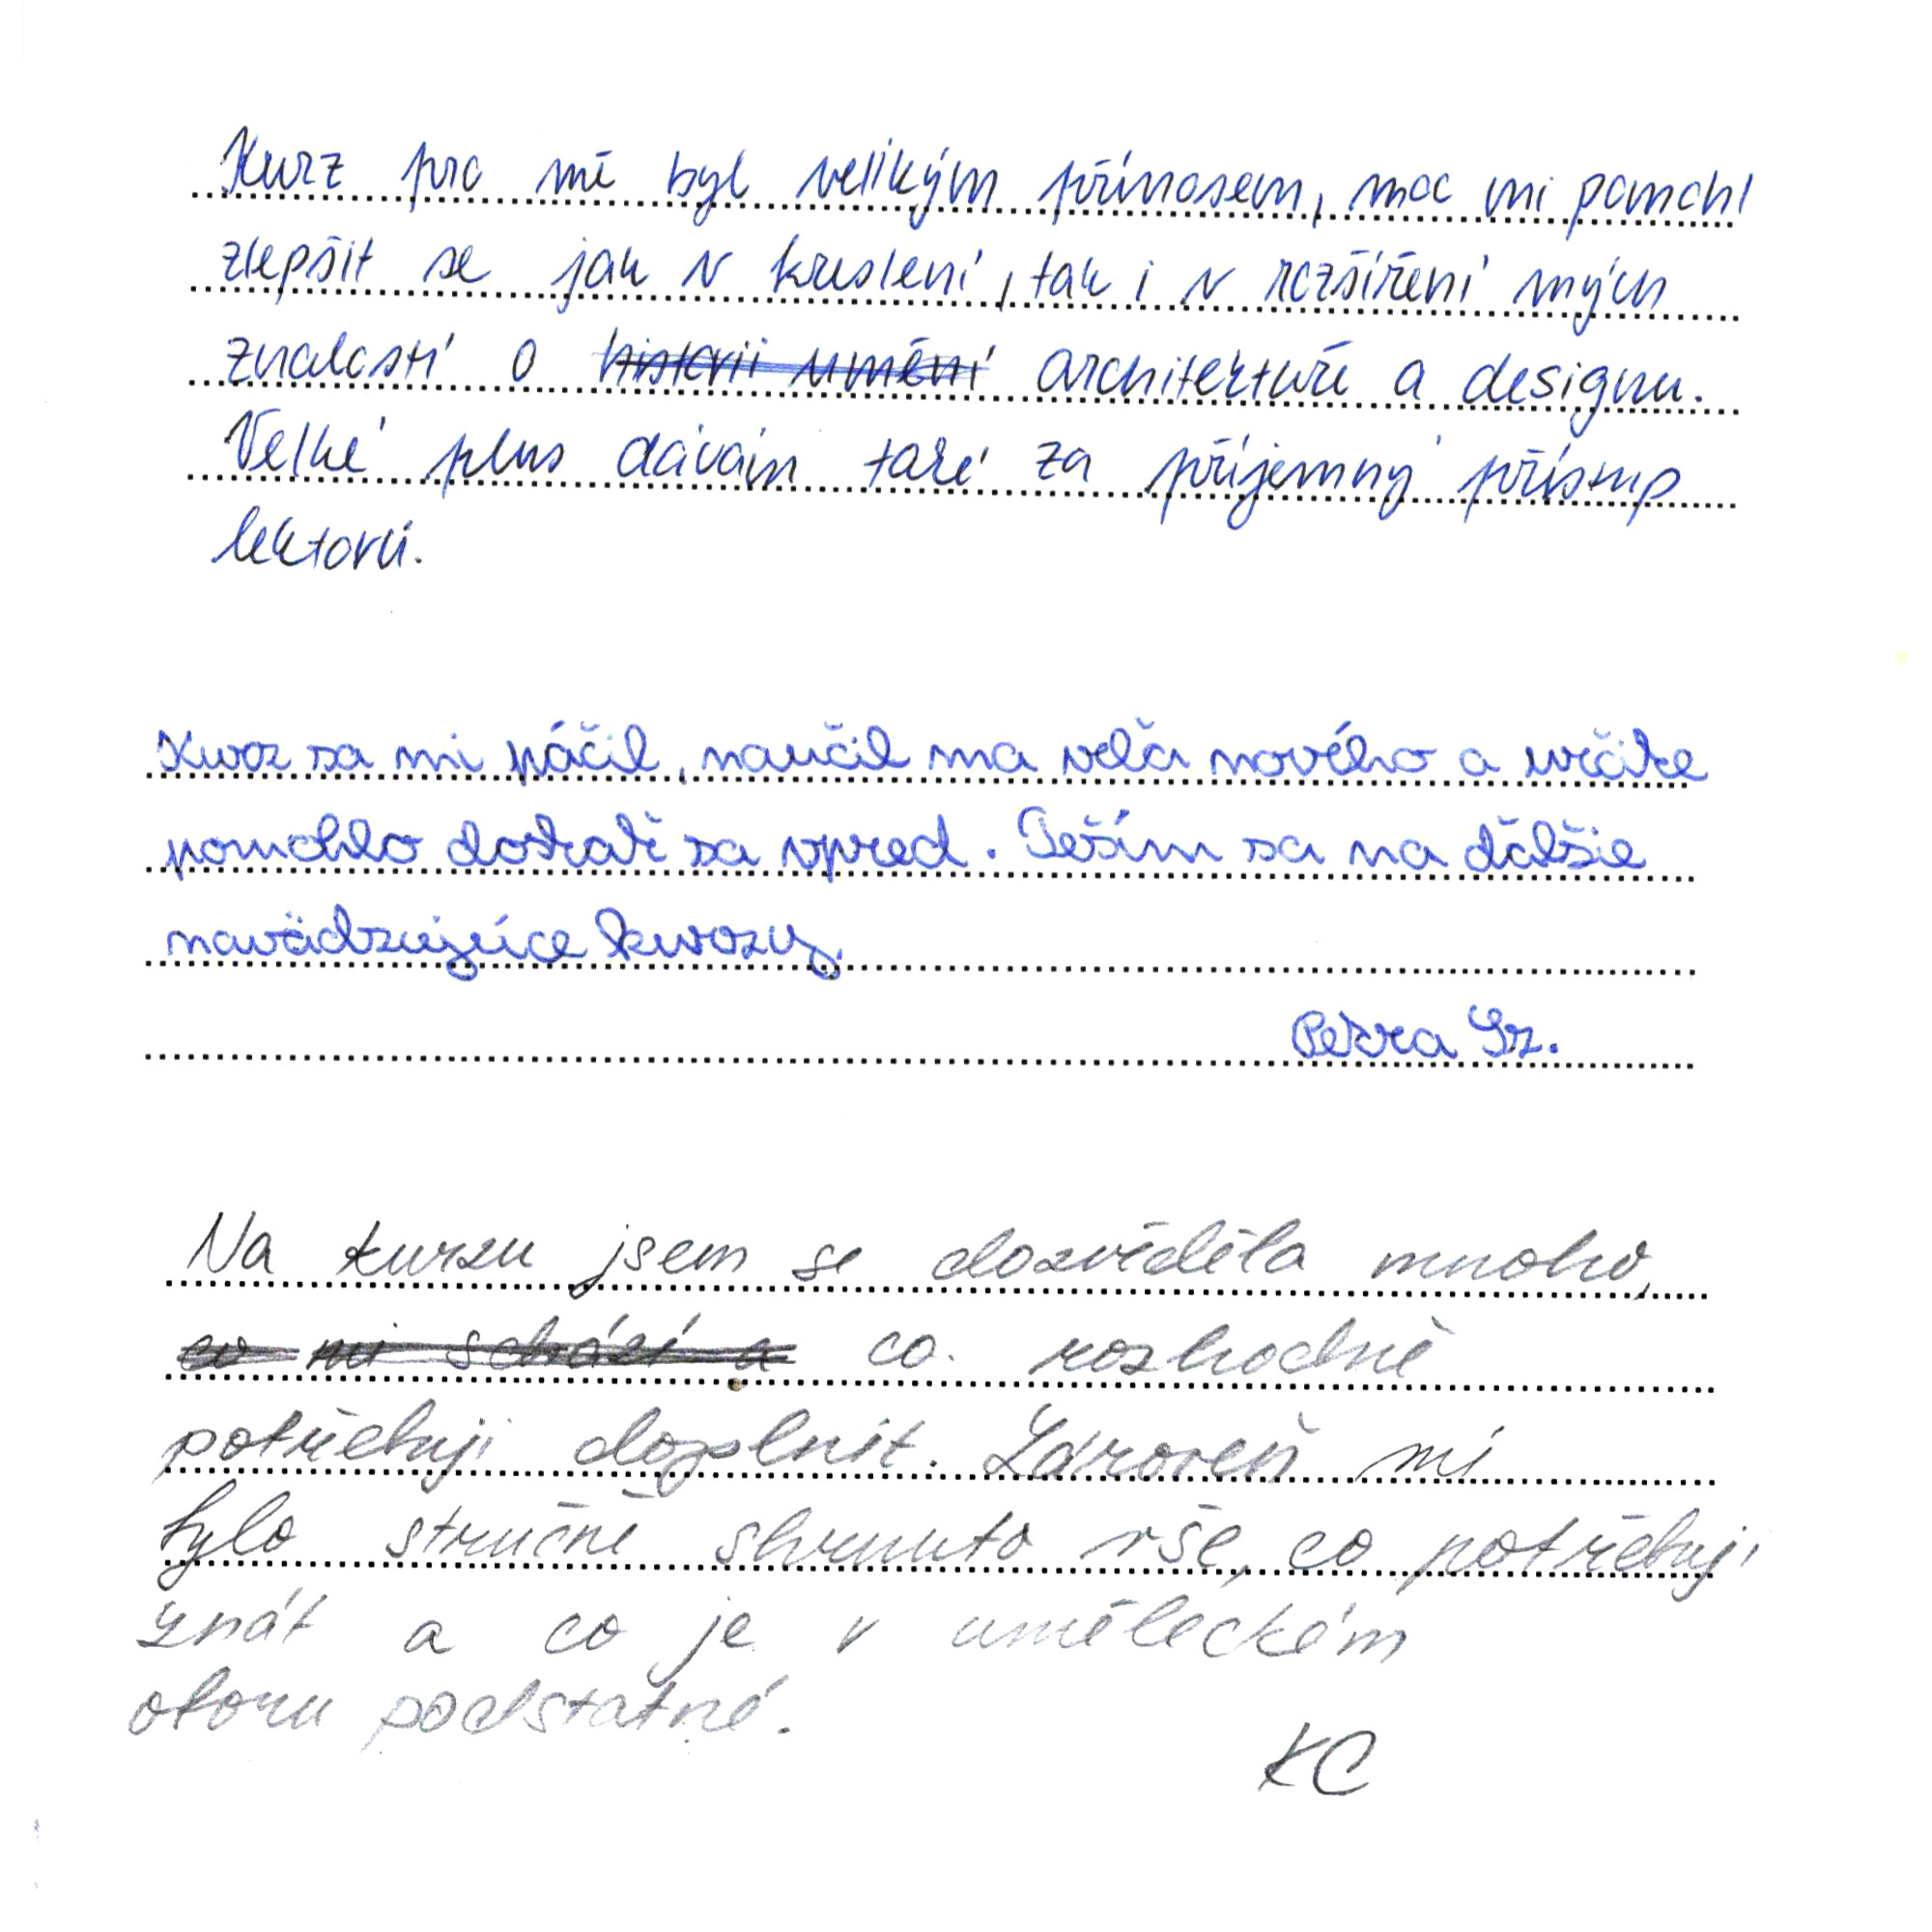 Kurz pro mě byl velikým přínosem, moc mi pomohl
zlepšit se jak v kreslení, tak i v rozšíření mých
znalostí o historii umění architektuře a designu.
Velké plus dávám také za příjemný přístup
lektorů.
Kurz sa mi páčil, naučil ma veľa nového a určite
pomohlo dostať sa vpred. Teším sa na ďalšie
navädzujúce kurzy.
Petra Sz.
Na kurzu jsem se dozvěděla mnoho,
co mi schází a co rozhodně
potřebuji doplnit. Zároveň mi
bylo stručně shrnuto vše, co potřebuji
znát a co je v uměleckém
oboru podstatné.
KC